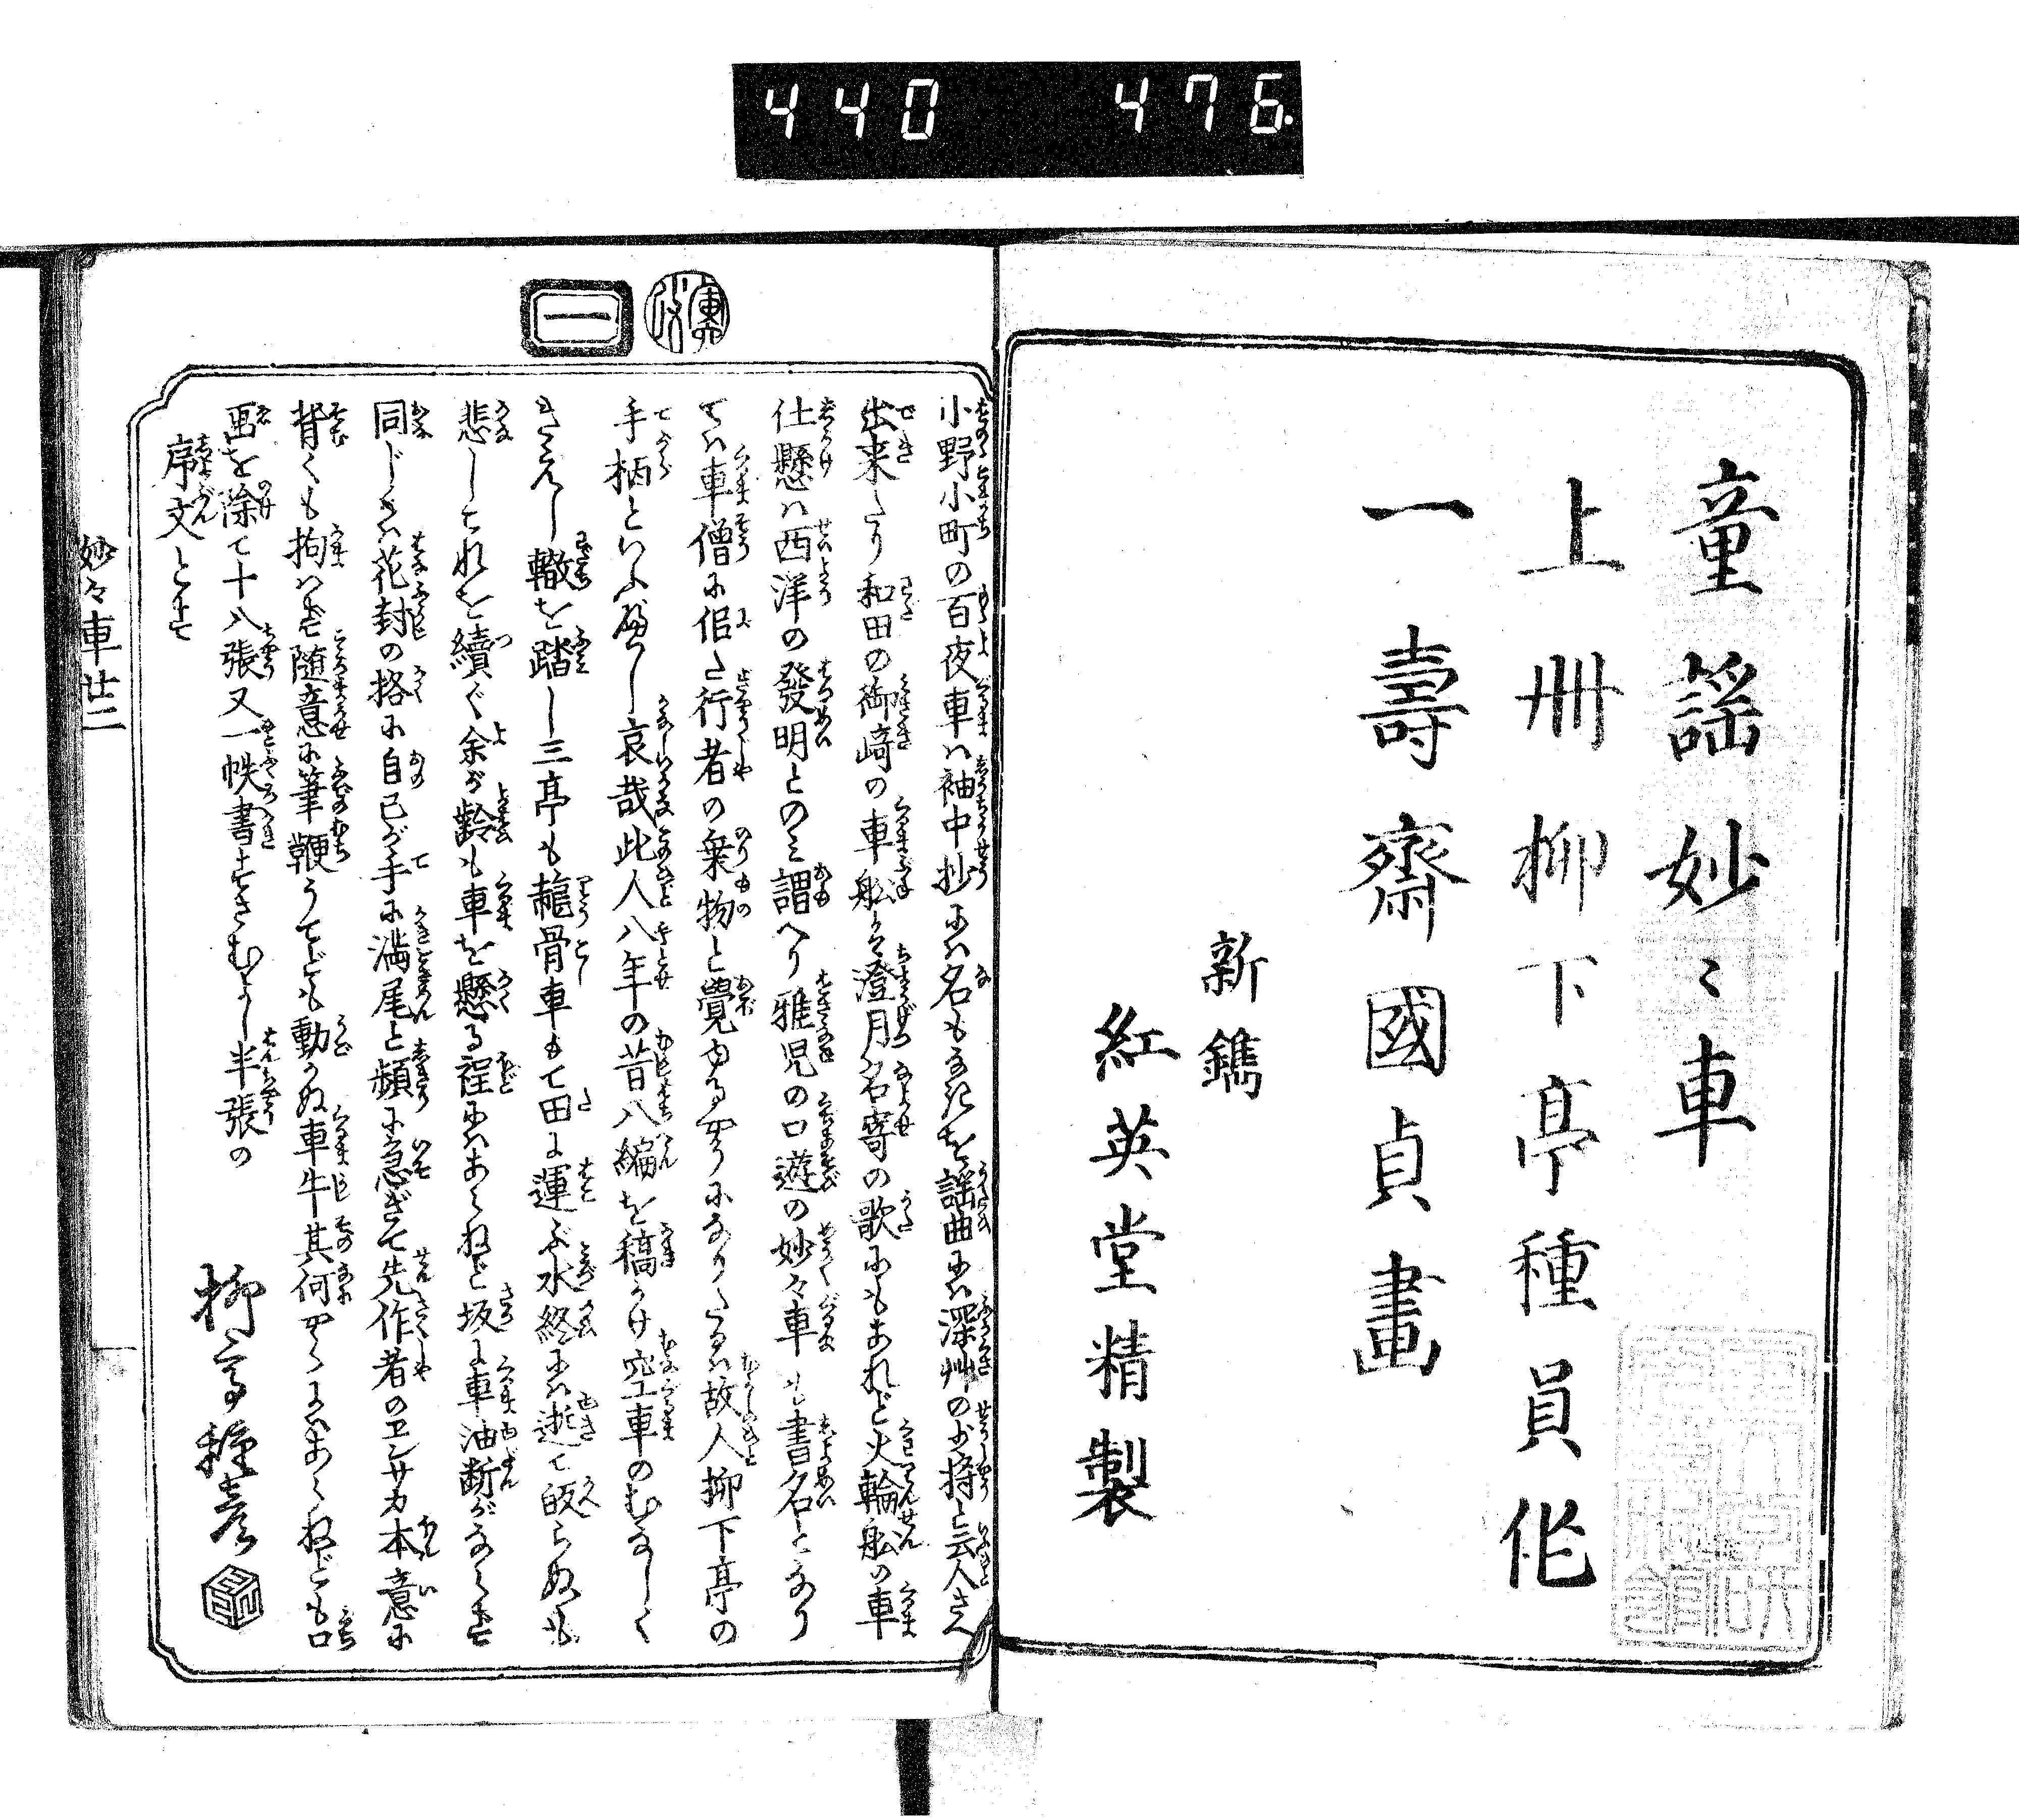 440 476.
童謡妙ゝ車
上州柳下亭種員作
一壽齋國貞畫
新鐫
紅英堂精製
一
小野小町の百夜車ハ袖中抄にハ名もなきを謡曲にハ深艸の少将と云人さへ
出来たり和田の御崎の車舩ハ澄月名寄の歌にもあれど火輪舩の車
仕懸ハ西洋の發明とのミ謂へり雅児の口遊の妙々車も書名となり
てハ車僧に似た行者の乗物と覺ゆるやうになりたるハ故人柳下亭の
手柄といふべし哀哉此人八年の昔八編を稿かけ空車のむなしく
きえし轍を踏し三亭も龍骨車もて田に運ぶ水終にハ逝て皈らぬも
悲しこれを續ぐ余が齢も車を懸る程にハあらねど坂に車油断がならず
同じきハ花封の格に自己が手に満尾と頻に急ぎて先作者のヱンサカ本意に
背くも拘ハず随意に筆鞭うてども動かぬ車牛其何やらにハあらねども口
画を除て十八張又一帙書すさむよし半張の
序文とす
柳亭種彦
妙々車廿二